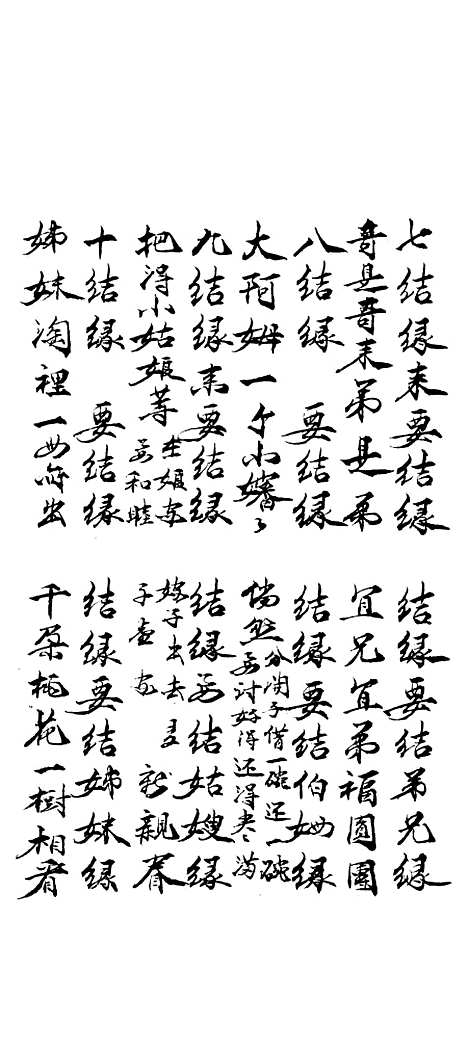 七结缘来要结缘
结缘要结弟兄缘
哥是哥来弟是弟
宜兄宜弟福圆圆
八结缘 要结缘
结缘要结伯姆缘
大阿姆一个小嬸
倘然分淘子借一碗还一碗
要讨好得还得尽满
九结缘来要结缘
结缘要结姑嫂缘
把得小姑娘等在娘家
要和睦
嫁子出去 新親眷
十结缘 要结缘
结缘要结姊妹缘
姊妹淘裡一母所出
千朵桃花一樹相看